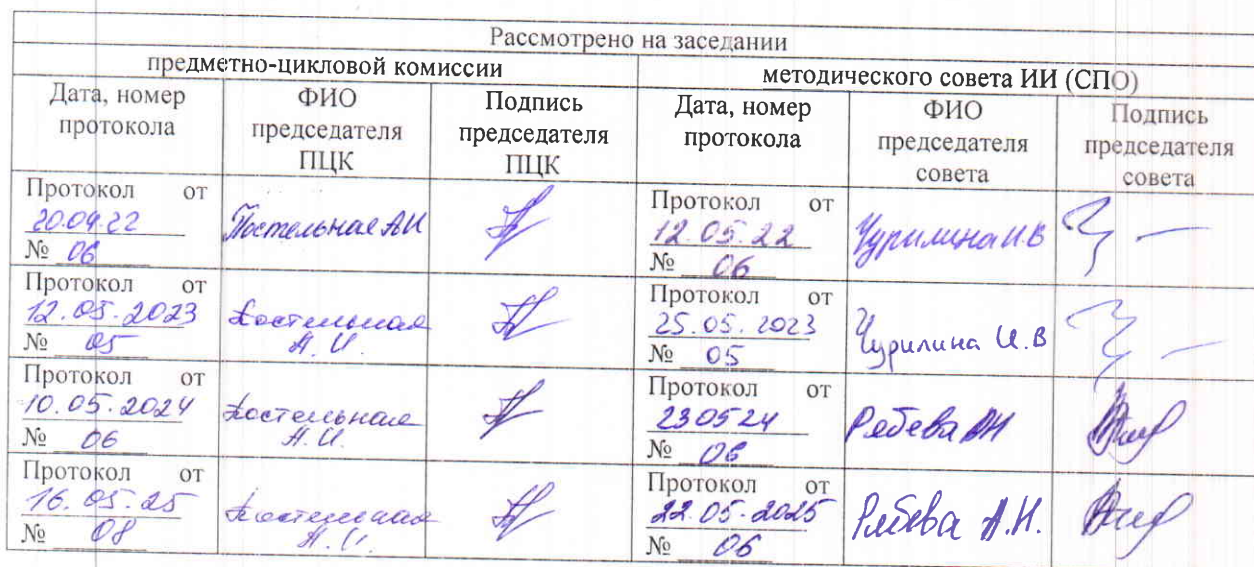 Рассмотрено на заседании
предметно-цикловой комиссии методического совета ИИ (СПО)
Дата, номер протокола ФИО председателя ПЦК Подпись председателя ПЦК Дата, номер протокола ФИО председателя совета Подпись председателя совета
Протокол от
20.04.22
№ 06
Постельная АИ
Протокол от
12.05.22
№ 06
Чурилина И.В
Протокол от
12.05.2023
№ 05
Постельная
А.И.
Протокол от
25.05.2023
№ 05
Чурилина И.В
Протокол от
10.05.2024
№ 06
Постельная
А.И.
Протокол от
230524
№ 06
Рябева АН
Протокол от
16.05.25
№ 08
Постельная
А.И.
Протокол от
22.05.2025
№ 06
Рябева А.Н.